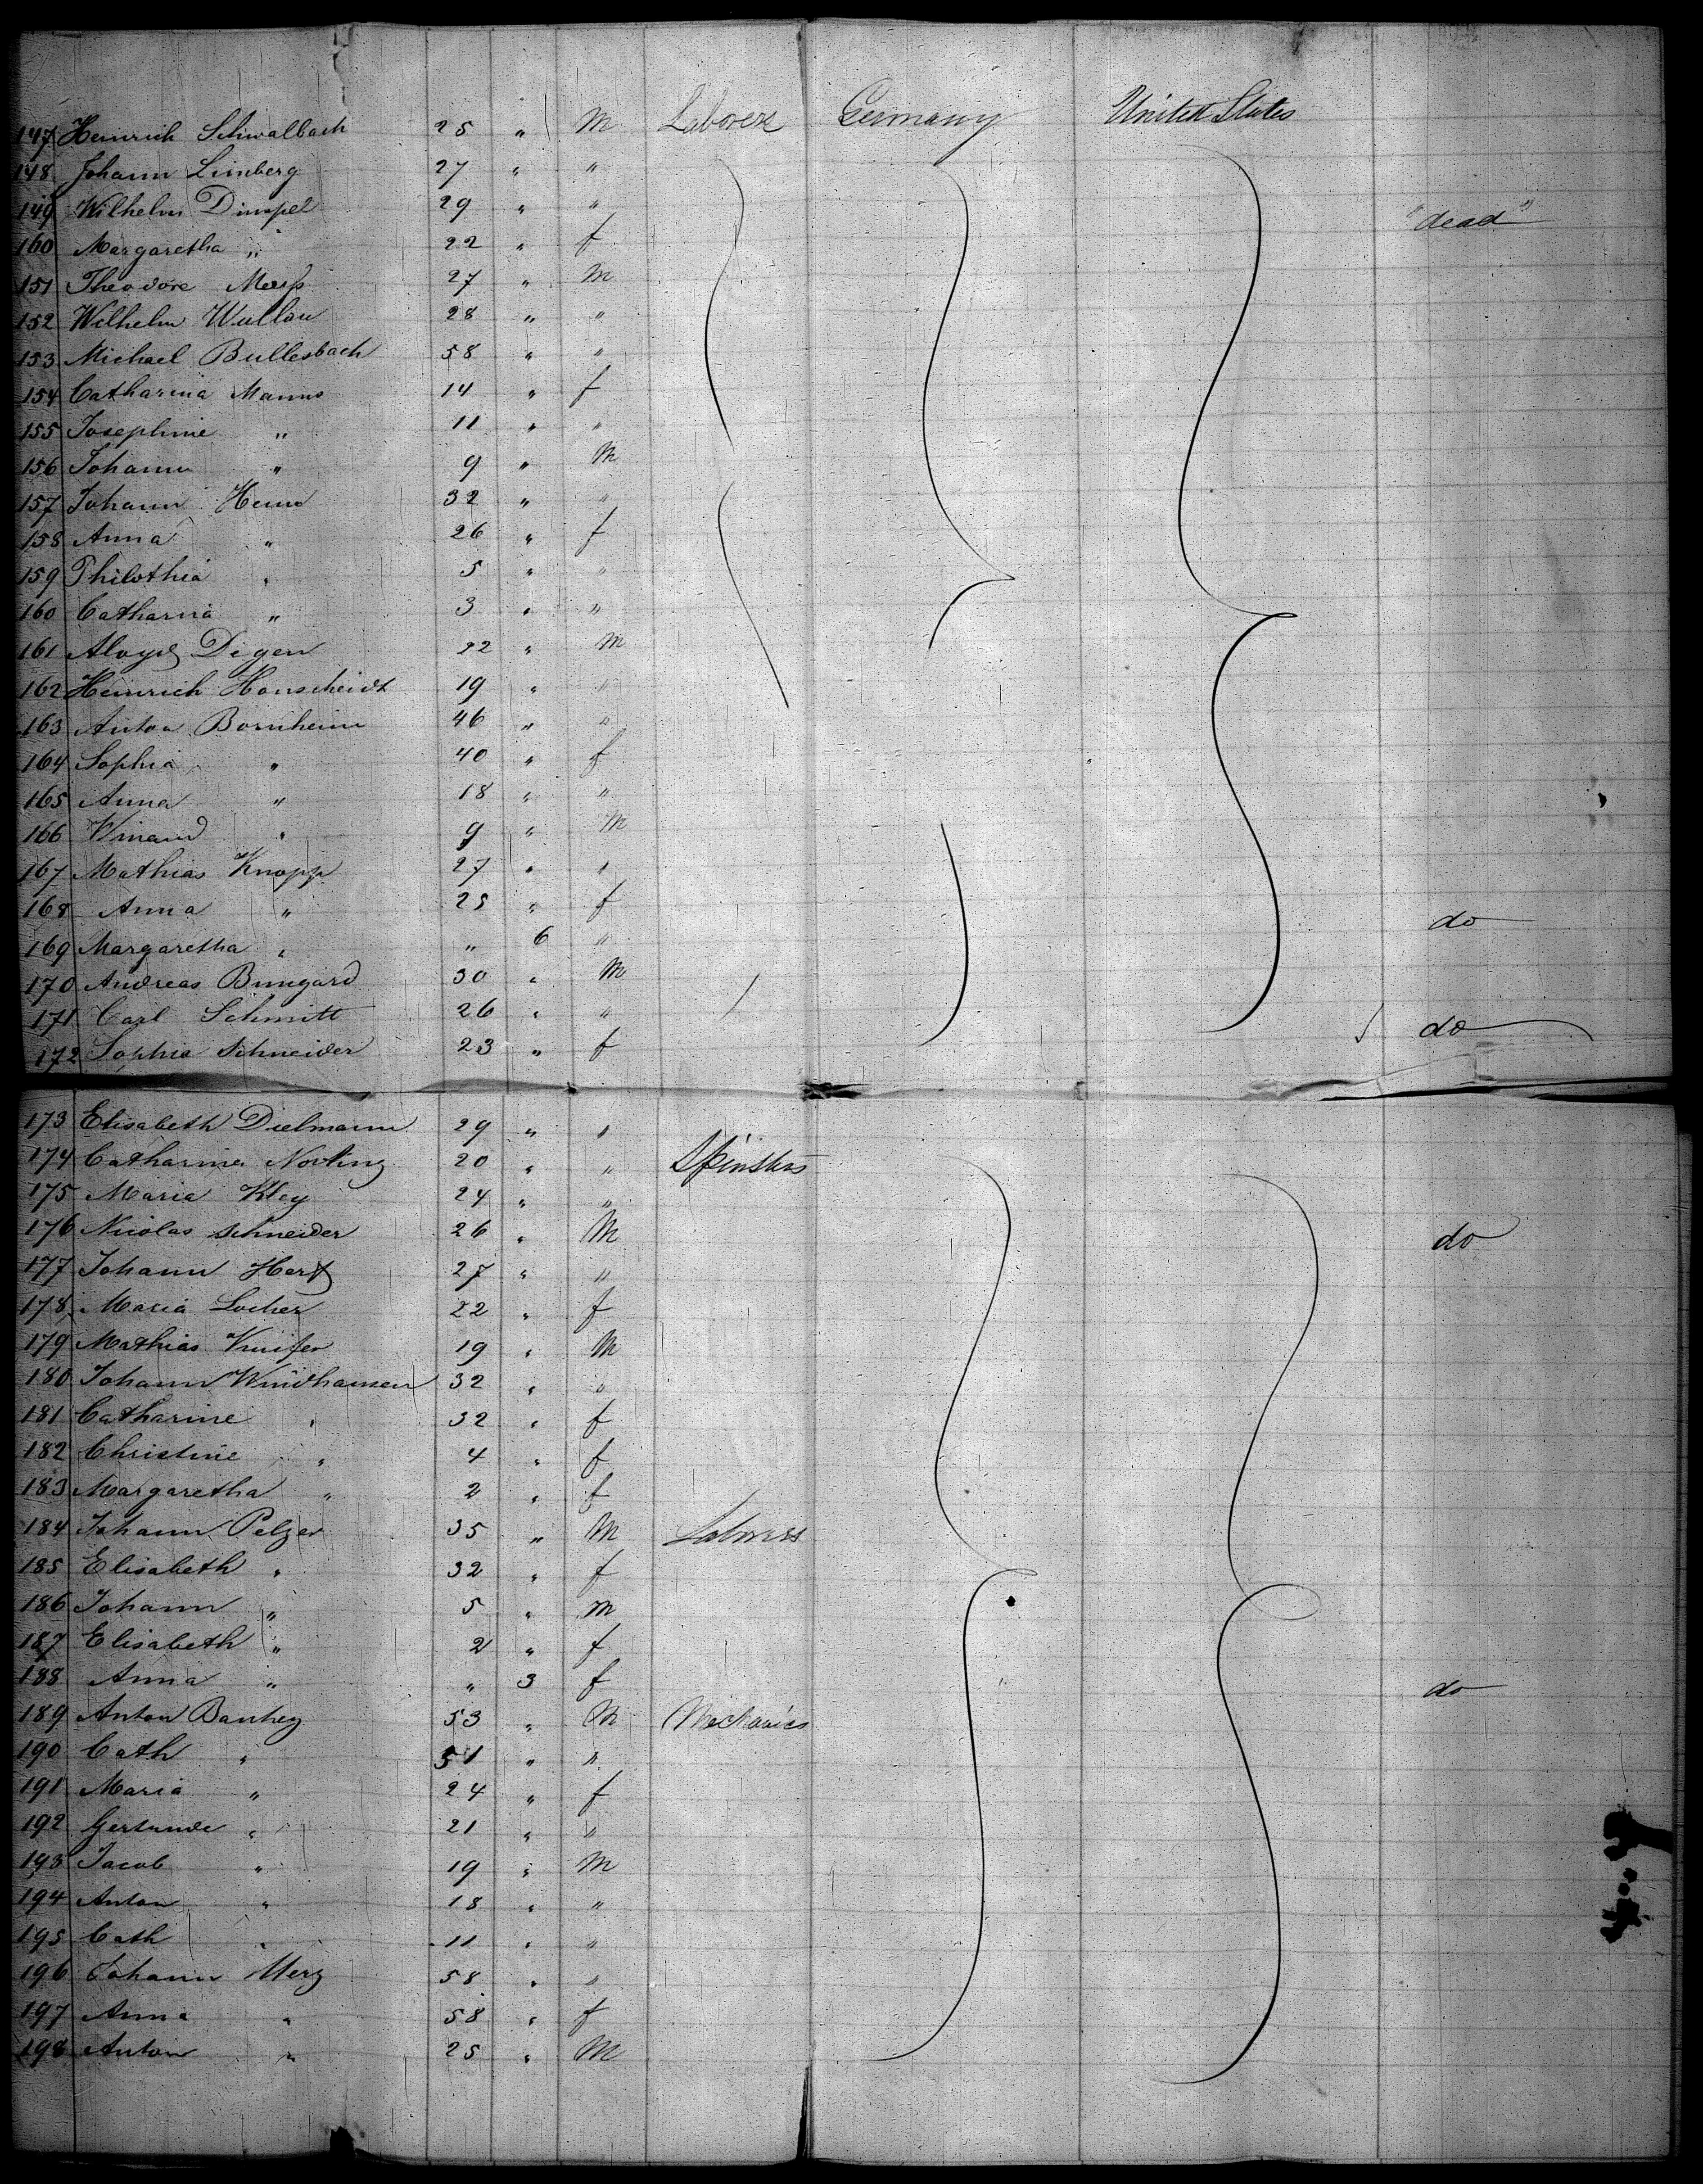 147 Heinrich Schwalbach 25 " M Laborers Germany United States
148 Johann Limberg 27 " "
149 Wilhelm Dimpel 29 " " "dead"
160 Margaretha " 22 " f
151 Theodore 27 " M
152 Wilhelm Wullau 28 " "
153 Michael Bullesbach 58 " "
154 Catharina Manns 14 " f
155 Josephine " 11 " "
156 Johann " 9 " M
157 Johann 32 " "
158 Anna " 26 " f
159 Philothia " 5 " "
160 Catharina " 3 " "
161 Aloys Digen 22 " M
162 Heinrich Honscheidt 19 " "
163 Anton Bornheim 46 " "
164 Sophia " 40 " f
165 Anna " 18 " "
166 Winand " 9 " M
167 Mathias Knopp 27 " "
168 Anna " 25 " f
169 Margaretha " " 6 " do
170 Andreas Bungard 30 " M
171 Carl Schmitt 26 " "
172 Sophia Schneider 23 " f do
173 Elisabeth Dielmann 29 " "
174 Catharina 20 " " Spinsters
175 Maria Kley 24 " "
176 Nicolas Schneider 26 " M do
177 Johann 27 " "
178 Maria Locher 22 " f
179 Mathias 19 " M
180 Johann Windhausen 32 " "
181 Catharine " 32 " f
182 Christine " 4 " f
183 Margaretha " 2 " f
184 Johann Pelzer 35 " M Laborers
185 Elisabeth " 32 " f
186 Johann " 5 " M
187 Elisabeth " 2 " f
188 Anna " " 3 f do
189 Anton 53 " M Mechanics
190 Cath " 51 " "
191 Maria " 24 " f
192 Gertrude " 21 " "
193 Jacob " 19 " M
194 Anton " 18 " "
195 Cath " 11 " "
196 Johann Merz 58 " "
197 Anna " 58 " f
198 Anton " 25 " M